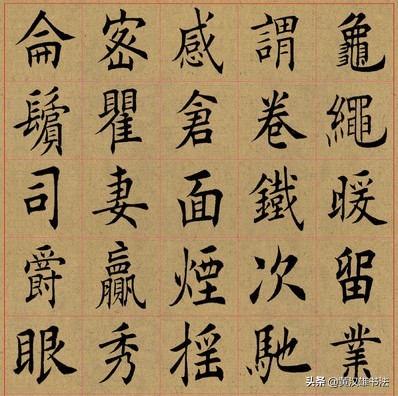 侖密感謂龜
鬢瞿倉卷繩
司妻面鐵暖
爵贏煙次留
眼秀揺馳業
头条 @黄汉雄书法